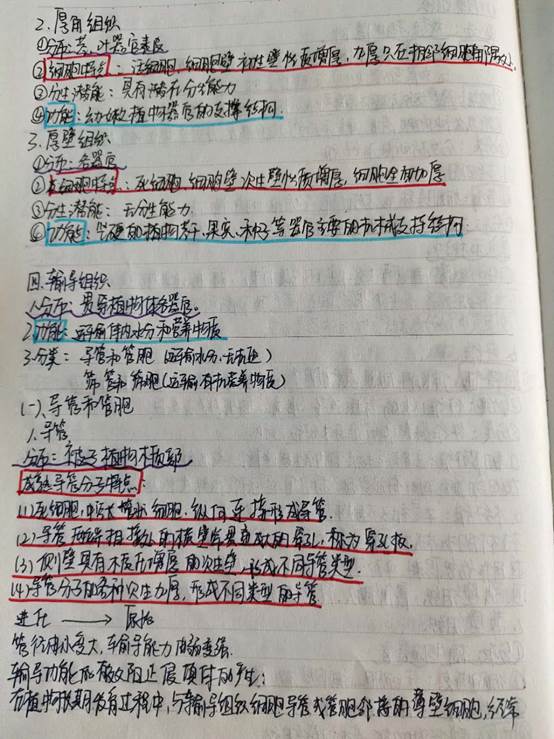 2.厚角组织
①分布:茎、叶器官表皮
②细胞特点:活细胞,细胞壁初生壁性质增厚,加厚只在相邻细胞角隅处.
③分生潜能:具有潜在分生能力
④功能:幼嫩植物器官的支撑结构.
3.厚壁组织
①分布:各器官
②细胞特点:死细胞,细胞壁次生壁性质增厚,细胞全面加厚
③分生潜能:无分生能力
④功能:坚硬的植物茎、果实、种子等器官主要的机械支持结构
四.输导组织
1.分布:贯穿植物体各器官。
2.功能:运输体内水分和营养物质
3.分类:导管和管胞(运输水分、无机盐)
筛管和筛胞(运输有机营养物质)
(一)、导管和管胞
1.导管
分布:被子植物木质部
成熟导管分子特点:
(1)死细胞,中空长筒状细胞,纵向连接形成导管.
(2)导管两端相接处的横壁常具有大的穿孔,称为穿孔板.
(3)侧壁具有木质化增厚的次生壁,形成不同导管类型.
(4)导管分子的各种次生加厚,形成不同类型的导管
进化 → 原始
管径由小变大,输导能力由弱变强
输导功能的被阻止展
在植物长期发育过程中,与输导组织细胞导管或管胞邻接的薄壁细胞,经常